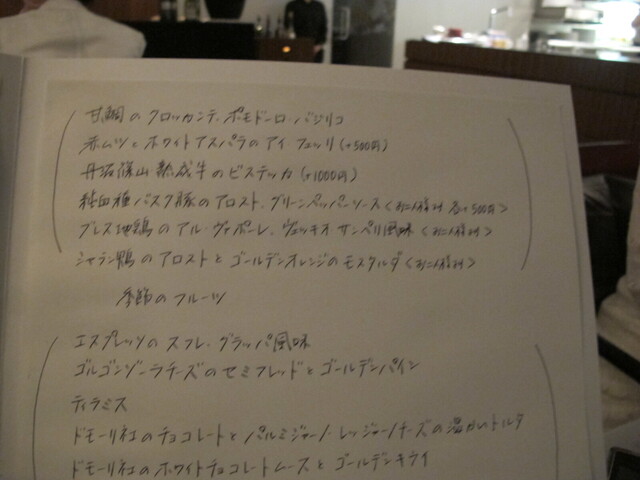 甘鯛のクロッカンテ、ポモドーロ・バジリコ
赤ムツとホワイトアスパラのアイ フェッリ(+500円)
丹波篠山熟成牛のビステッカ(+1000円)
純血種バスク豚のアロスト、グリーンペッパーソース<お二人様より 各+500円>
ブレス地鶏のアル・ヴァポーレ、ヴェッキオ サンペリ風味<お二人様より>
シャラン鴨のアロストとゴールデンオレンジのモスタルダ<お二人様より>
季節のフルーツ
エスプレッソのスフレ、グラッパ風味
ゴルゴンゾーラチーズのセミフレッドとゴールデンパイン
ティラミス
ドモーリ社のチョコレートとパルミジャーノ・レッジャーノチーズの温かいトルタ
ドモーリ社のホワイトチョコレートムースとゴールデンキウイ